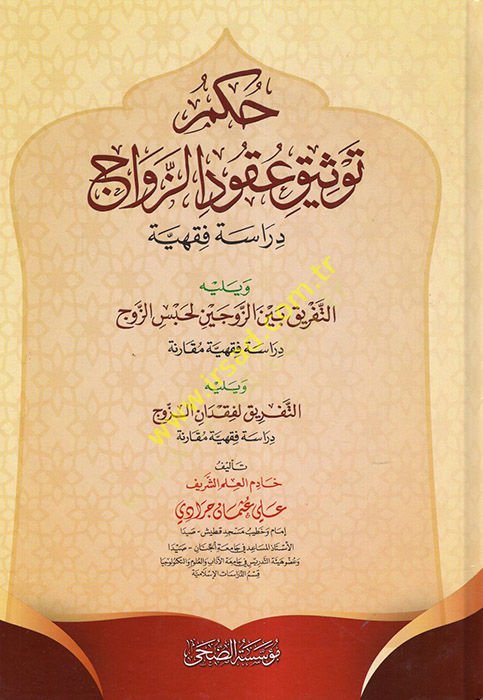 حُكْمُ
تَوْثِيقِ عُقُودِ الزَّوَاجِ
دِرَاسَة فِقْهِيَّة
وَيَلِيه
التَّفْرِيقُ بَيْنَ الزَّوْجَيْنِ لِحَبْسِ الزَّوْجِ
دِرَاسَة فِقْهِيَّة مُقَارَنة
وَيَلِيه
التَّفْرِيقُ لِفِقْدَانِ الزَّوْجِ
دِرَاسَة فِقْهِيَّة مُقَارَنة
تَأْلِيفُ
خَادِمِ العِلْمِ الشَّرِيفِ
عَلِي عُثْمَان جَرَادِي
إمَام وَخَطِيب مَسْجِد قطيش - صَيْدَا
الأُسْتَاذ المُسَاعِد في جَامِعَة الجِنَان - صَيْدَا
وَعُضْو هَيْئَة التَّدْرِيس في جَامِعَة الآدَاب وَالعُلُوم وَالتِّكْنُولُوجيَا
قِسْم الدِّرَاسَات الإِسْلَامِيَّة
مُؤَسَّسَة الضُّحَى
www.irsad.com.tr